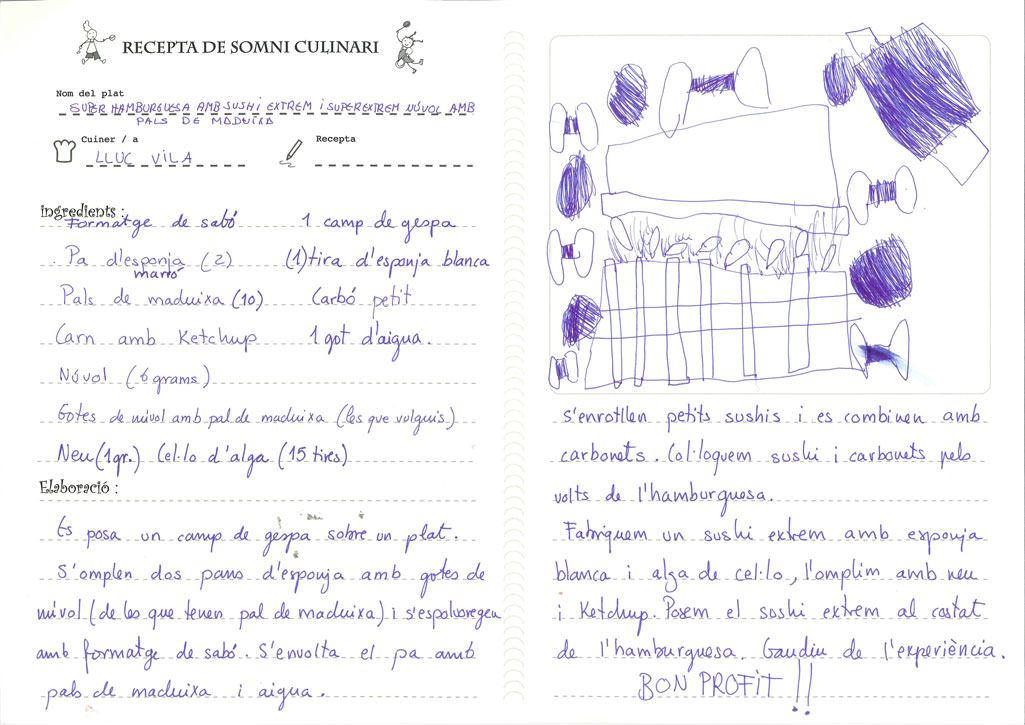 RECEPTA DE SOMNI CULINARI
Nom del plat
SUPER HAMBURGUESA AMB SUSHI EXTREM I SUPEREXTREM NÚVOL AMB
PALS DE MADUIXA
Cuiner / a
Recepta
LLUC VILA
Ingredients :
Formatge de sabó
1 camp de gespa
. Pa d'esponja (2)
(1) tira d'esponja blanca
marró
Pals de maduixa (10)
Carbó petit
Carn amb Ketchup
1 got d'aigua.
Núvol (6 grams)
Gotes de núvol amb pal de maduixa (les que vulguis)
Neu (1gr.) Cel·lo d'alga (15 tires)
Elaboració :
Es posa un camp de gespa sobre un plat.
S'omplen dos pans d'esponja amb gotes de
núvol (de les que tenen pal de maduixa) i s'espolvoregen
amb formatge de sabó. S'envolta el pa amb
pals de maduixa i aigua.
S'enrotllen petits sushis i es combinen amb
carbonets. Col·loquem sushi i carbonets pels
volts de l'hamburguesa.
Fabriquem un sushi extrem amb esponja
blanca i alga de cel·lo, l'omplim amb neu
i Ketchup. Posem el sushi extrem al costat
de l'hamburguesa. Gaudiu de l'experiència.
BON PROFIT!!